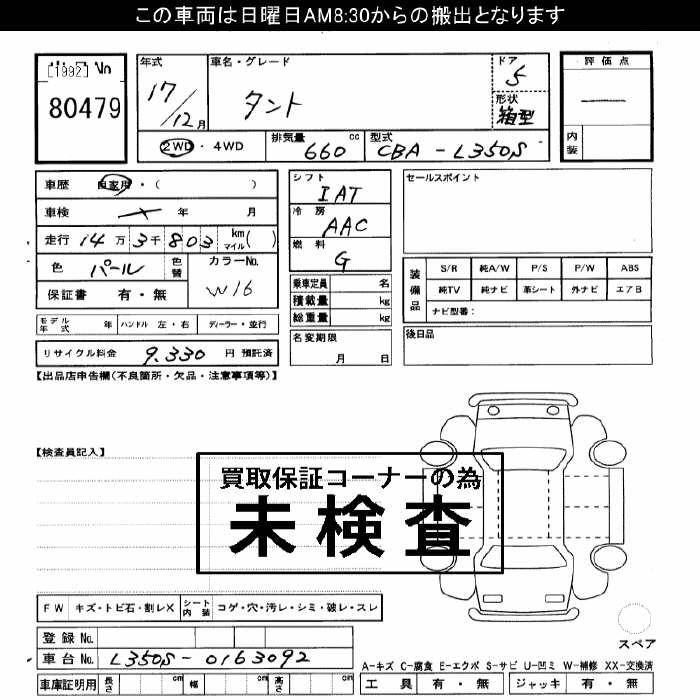 この車両は日曜日AM8:30からの搬出となります
[1992] No
80479
年式 17/12月
車名・グレード タント
ドア 5
形状 箱型
評価点 —
内装
2WD・4WD
排気量 660 cc
型式 CBA-L350S
車歴 自家用・( )
車検 年 月
走行 14万3千803 km マイル( )
色 パール 色替
カラーNo. W16
保証書 有・無
シフト IAT
冷房 AAC
燃料 G
乗車定員 名
積載量 kg
総重量 kg
セールスポイント
装備品
S/R 純A/W P/S P/W ABS
純TV 純ナビ 革シート 外ナビ エアB
ナビ型番:
モデル年式 年 ハンドル 左・右 ディーラー・並行
リサイクル料金 9,330 円 預託済
名変期限 月 日
後日品
【出品店申告欄(不良箇所・欠品・注意事項等)】
【検査員記入】
買取保証コーナーの為
未検査
FW キズ・トビ石・割レX シート内装 コゲ・穴・汚レ・シミ・破レ・スレ
登録No.
車台No. L350S-0163092
車庫証明用 長さ cm 幅 cm 高さ cm
スペア
A-キズ C-腐食 E-エクボ S-サビ U-凹ミ W-補修 XX-交換済
工具 有・無 ジャッキ 有・無